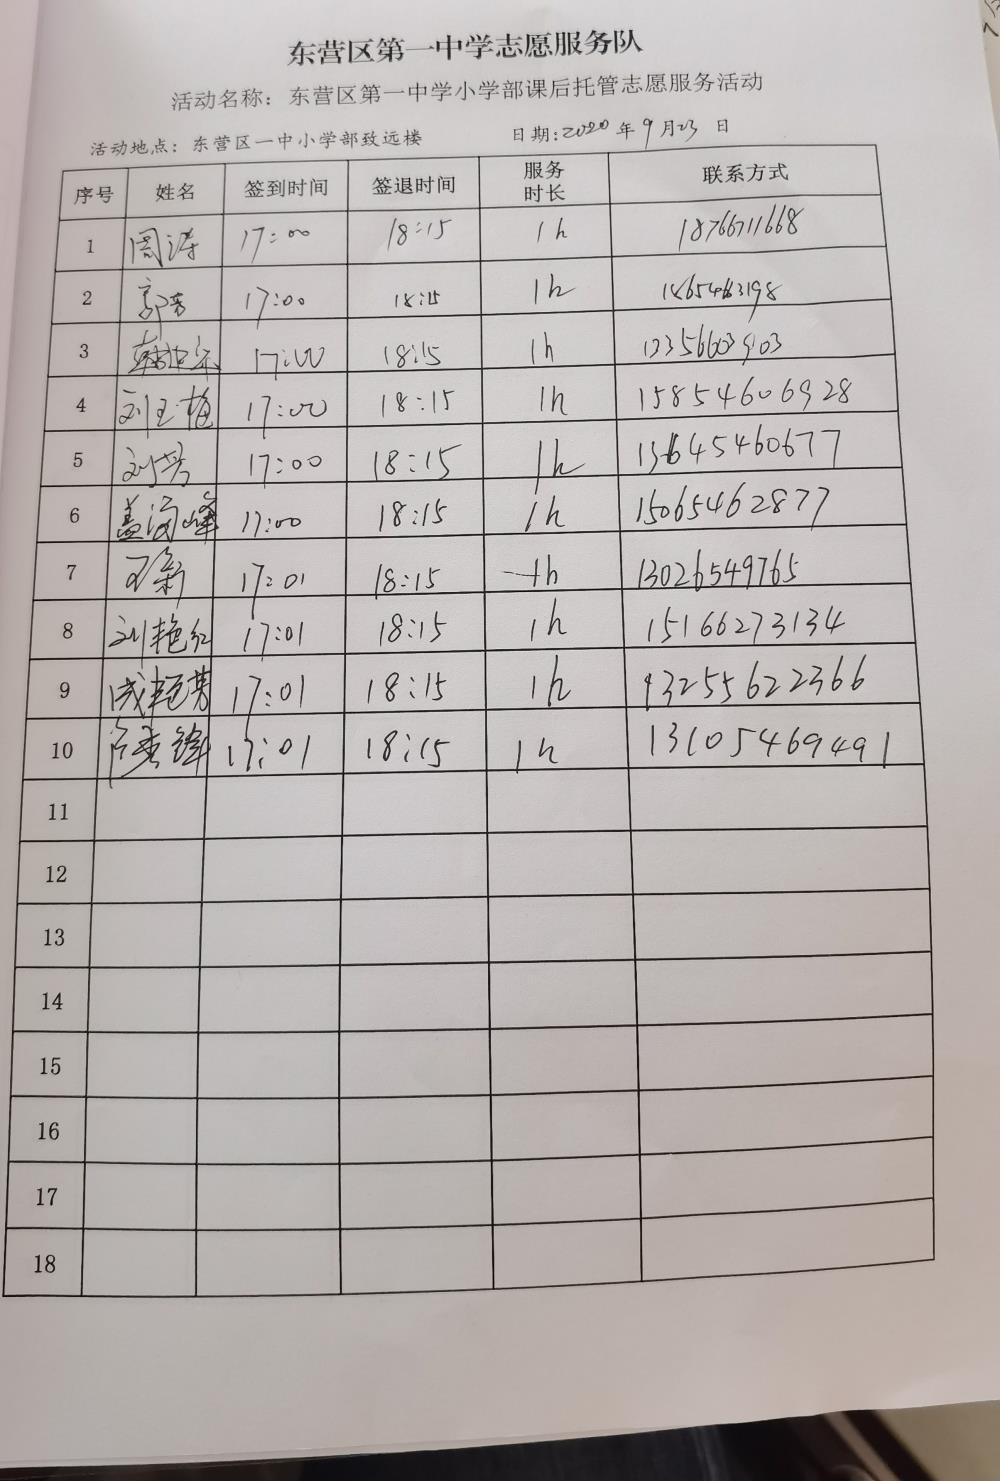 东营区第一中学志愿服务队
活动名称：东营区第一中学小学部课后托管志愿服务活动
活动地点：东营区一中小学部致远楼 日期:2020年9月23日
序号 姓名 签到时间 签退时间 服务时长 联系方式
1 周涛 17:00 18:15 1h 18766711668
2 郭芳 17:00 18:15 1h 18654663198
3 17:00 18:15 1h 13356603903
4 刘玉梅 17:00 18:15 1h 15854606928
5 刘芳 17:00 18:15 1h 13645460677
6 盖海峰 17:00 18:15 1h 15065462877
7 王新 17:01 18:15 1h 13026549765
8 刘艳红 17:01 18:15 1h 15166273134
9 成艳芳 17:01 18:15 1h 13255622366
10 17:01 18:15 1h 13105469491
11
12
13
14
15
16
17
18